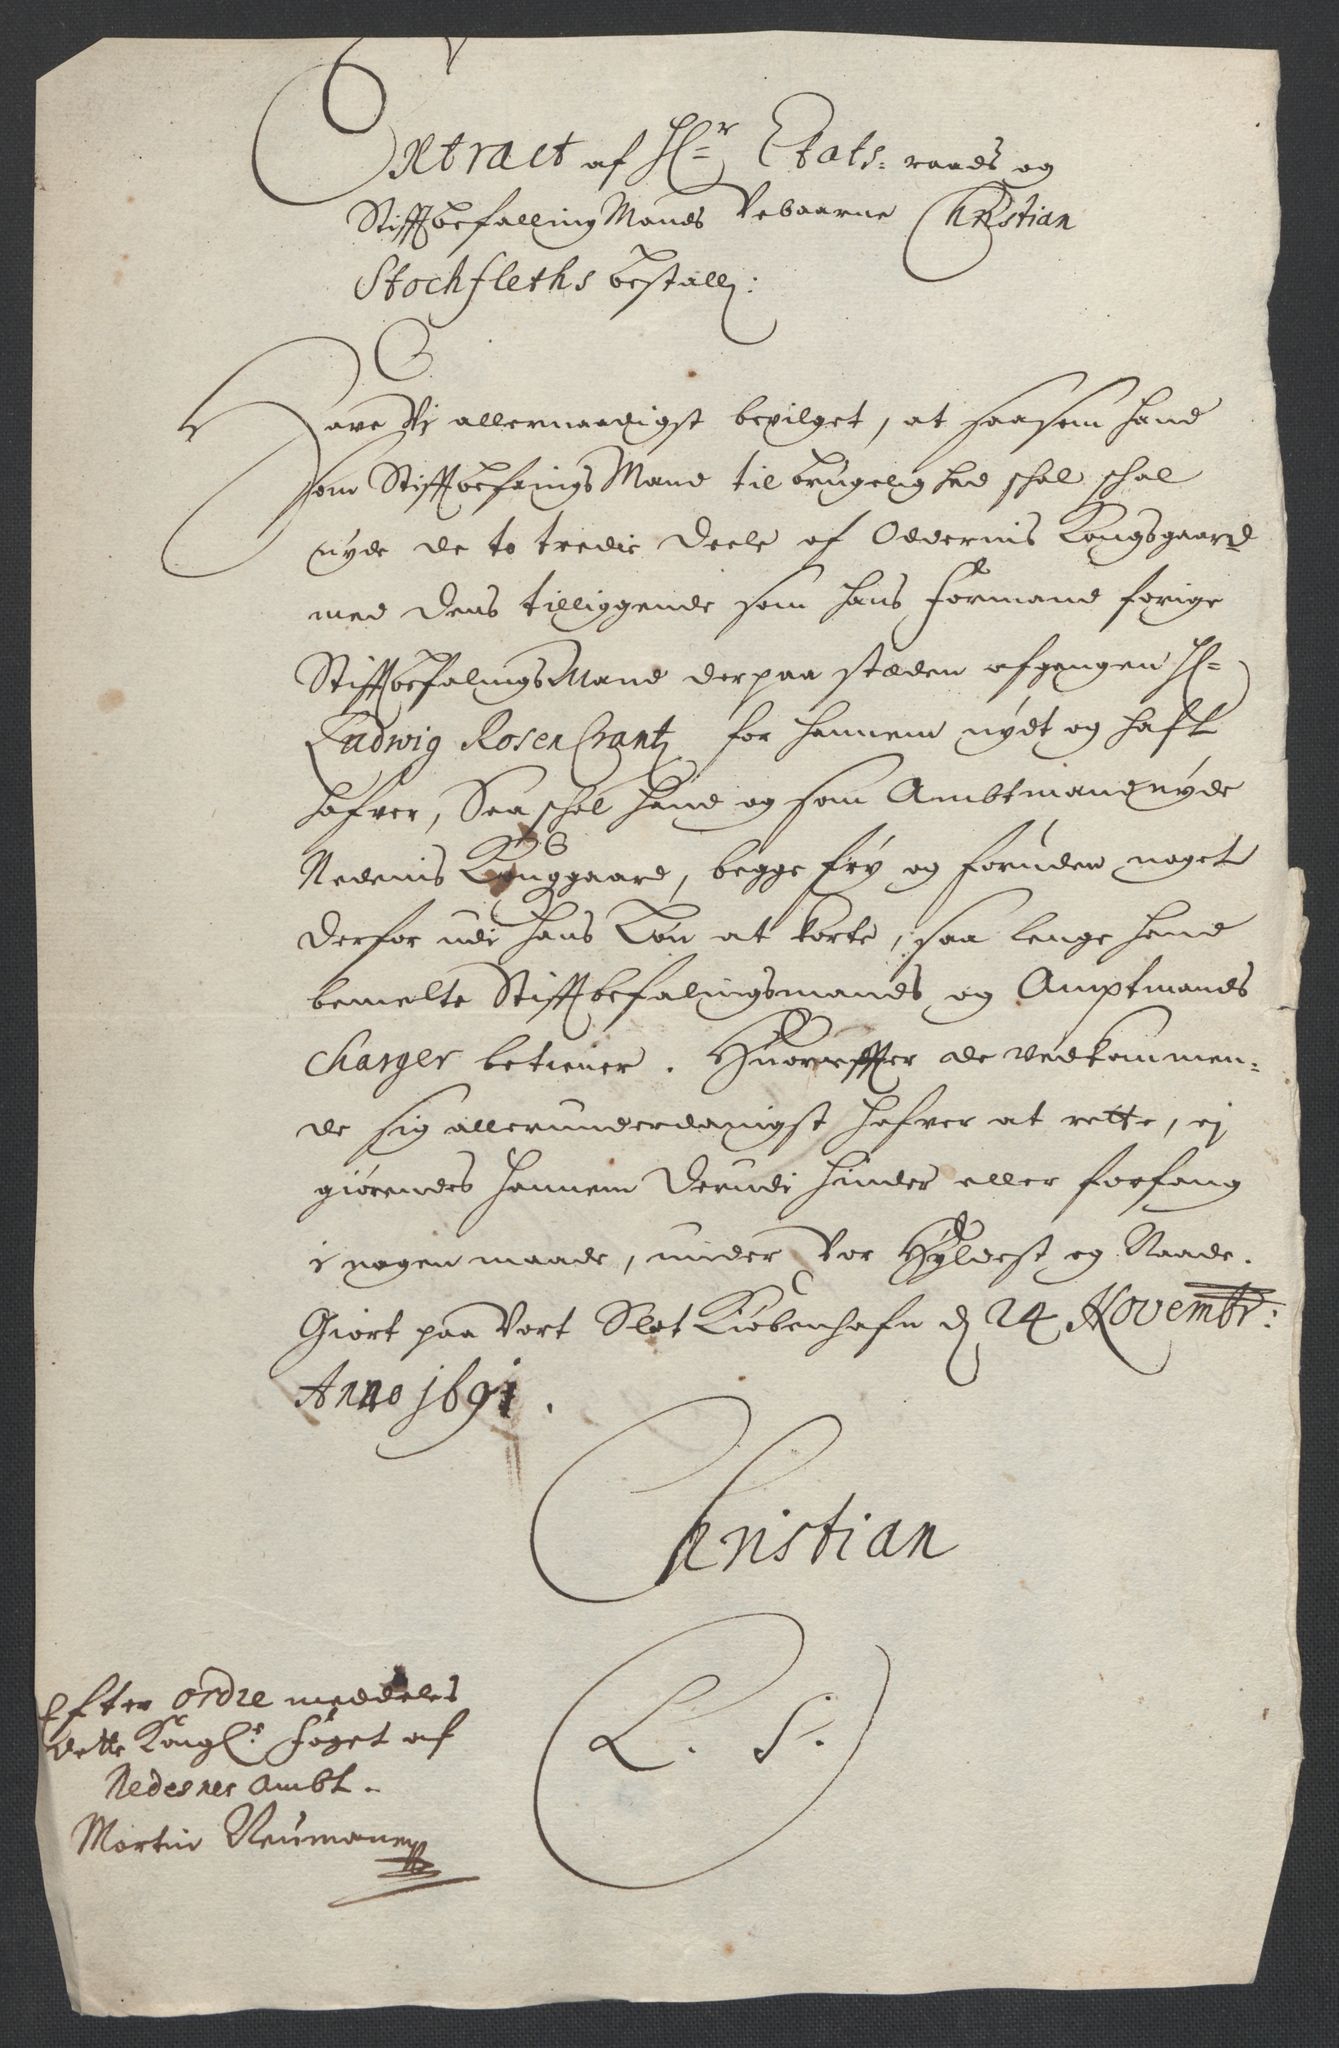 Extract af Hr Etats-raads og
StifftbefallingMands Velbaarne Christian
Stochfleths bestall:
Have Vi allernaadigst bevilget, at saasom hand
som Stifftbefalings Mand til brugelighed schal schal
nyde de to tredie deele af Oddernis Kongsgaard
med dens tilliggende som hans Formand forige
StifftbefalingsMand derpaa stæden afgangen Hr
Ludwig RosenCrantz for hannem nydt og haft
hafver, Saa schal hand og som Ambtmand nyde
Nedenis Konggaard, begge fry og foruden noget
derfor udi hans Løn at korte, saa lenge hand
bemelte Stifftbefalingsmands og Amptmands
Charger betiener. Hvorefter de vedkommen-
de sig allerunderdanigst hafver at rette, ej
giørendes hannem derudi hinder eller forfang
i nogen maade, under Vor Hyldest og Naade.
Giort paa Vort Slot Kiøbenhafn d 24 Novembr:
Anno 1691.
Christian
L. S.
Efter ordre meddeles
dette Kongl: foget af
Nedenes Ambt.
Morten Neumann